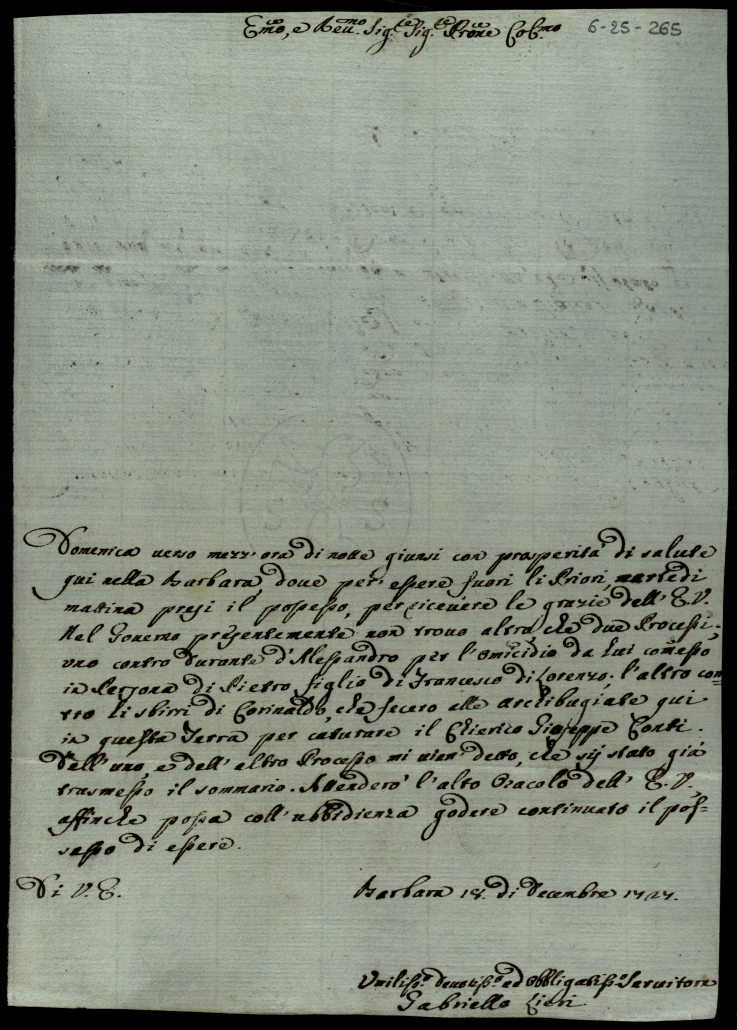 E.mo, e Rev.mo Sig.re Sig.re P.rone Col.mo 6-25-265
Domenica verso mezz'ora di notte giunsi con prosperità di salute
qui nella Barbara, dove per essere fuori li Priori, martedì
mattina presi il possesso, per ricevere le grazie dell'E.V.
Nel Governo presentemente non trovo altro, che due Processi,
uno contro Durante d'Alessandro per l'Omicidio da lui comesso
in Persona di Pietro figlio di Francesco di Lorenzo; l'altro con=
tro li sbirri di Corinaldo, che fecero alle archibugiate qui
in questa Terra per catturare il Chierico Giuseppe Conti.
Dell'uno e dell'altro Processo mi vien detto, che sij stato già
trasmesso il sommario. Attenderò l'alto Oracolo dell'E.V.
affinche possa coll'ubbidienza godere continuato il pos=
sesso di essere.
Di V.E.
Barbara 18. di Decembre
Umiliss.o devotiss.o ed obbligatiss.o Servitore
Gabriello